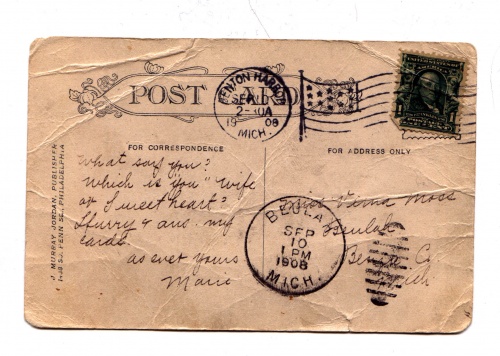 POST CARD
BENTON HARBOR
SEP 10
2-
1908
MICH.
FOR CORRESPONDENCE
FOR ADDRESS ONLY
J. MURRAY JORDAN, PUBLISHER
PENN SQ., PHILADELPHIA
What say you?
Which is "you" wife
or Sweetheart?
Hurry & ans. my
cards.
as ever yours
Marie
Miss Moss
Beulah
Benzie Co
Mich
BEULAH
SEP
10
1 PM
1908
MICH.